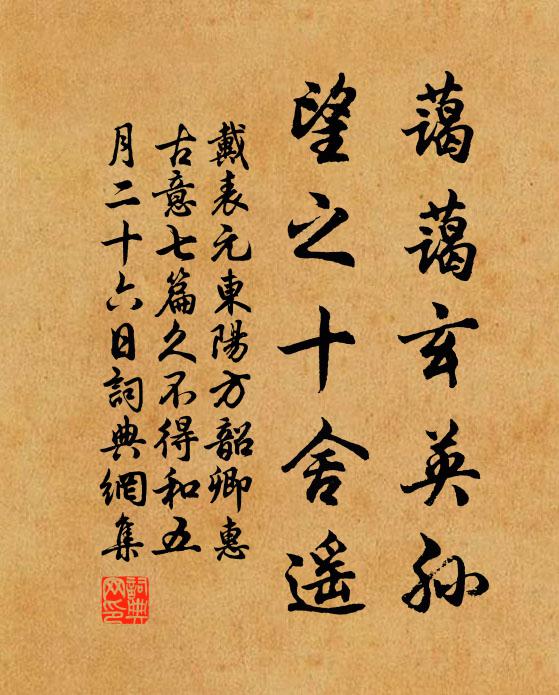 藹藹玄英孫
望之十舍遥
戴表元東陽方韶卿惠
古意七篇久不得和五
月二十六日詞典網集
詞典
网印